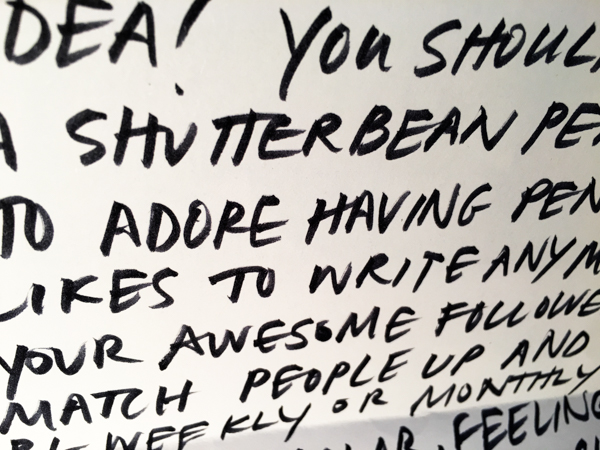 DEA! YOU SHOUL
A SHUTTERBEAN PE
TO ADORE HAVING PEN
LIKES TO WRITE ANYM
YOUR AWESOME FOLLOWE
MATCH PEOPLE UP AND
BI-WEEKLY OR MONTHLY
FEELING